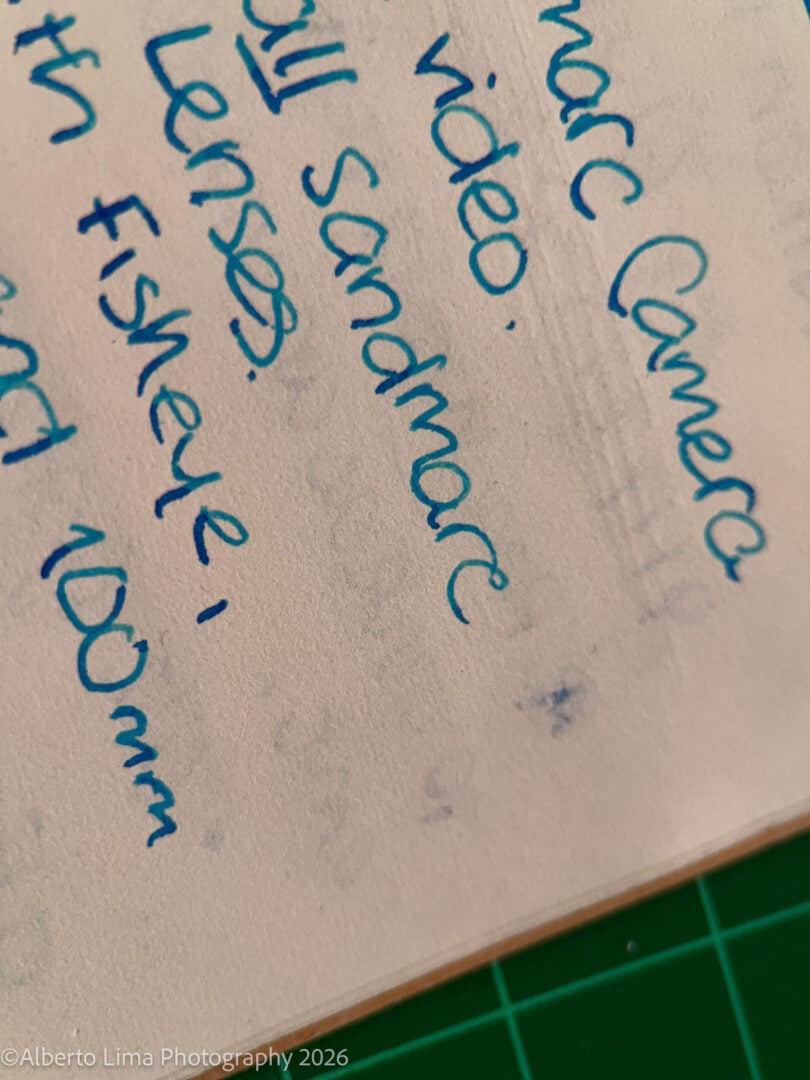 marc Camera
video.
all sandmarc
Lenses.
Fisheye,
100mm
©Alberto Lima Photography 2026